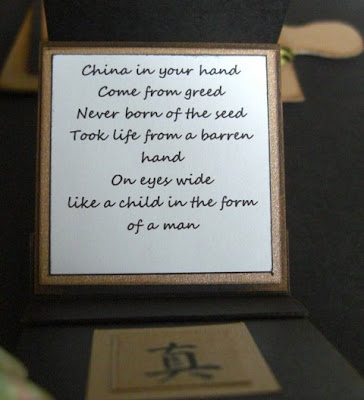 China in your hand
Come from greed
Never born of the seed
Took life from a barren
hand
On eyes wide
like a child in the form
of a man
真